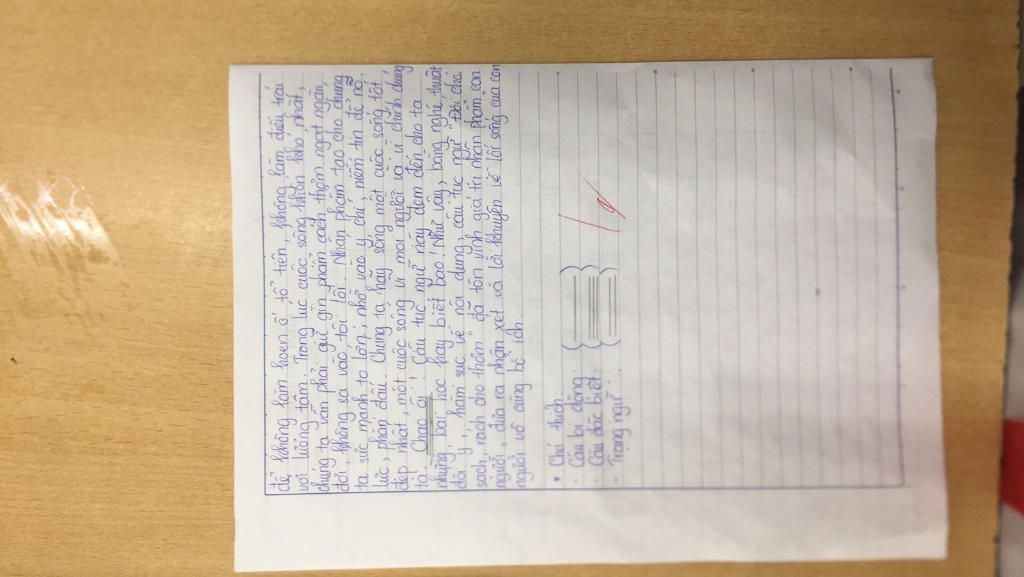 để không làm hoen ố tổ tiên, không làm điều trái
với lương tâm. Trong lúc cuộc sống khốn khó nhất,
chúng ta vẫn phải giữ gìn phẩm cách thơm ngát ngần,
đời, không sa vào tội lỗi. Nhân phẩm tạo cho chúng
ta sức mạnh to lớn, nhờ vào ý chí, niềm tin để nỗ
lực, phấn đấu. Chúng ta hãy sống một cuộc sống tốt
đẹp nhất, một cuộc sống vì mọi người và vì chính chúng
ta. Chao ôi! Câu tục ngữ này đem đến cho ta
những bài học hay biết bao! Như vậy, bằng nghệ thuật
đối ý, hàm súc về nội dung, câu tục ngữ "Đói cho
sạch, rách cho thơm" đã tôn vinh giá trị nhân phẩm con
người, đưa ra nhận xét và lời khuyên về lối sống của con
người vô cùng bổ ích.
* Chú thích:
- Câu bị động: ( )
- Câu đặc biệt: ( )
- Trạng ngữ: ( )